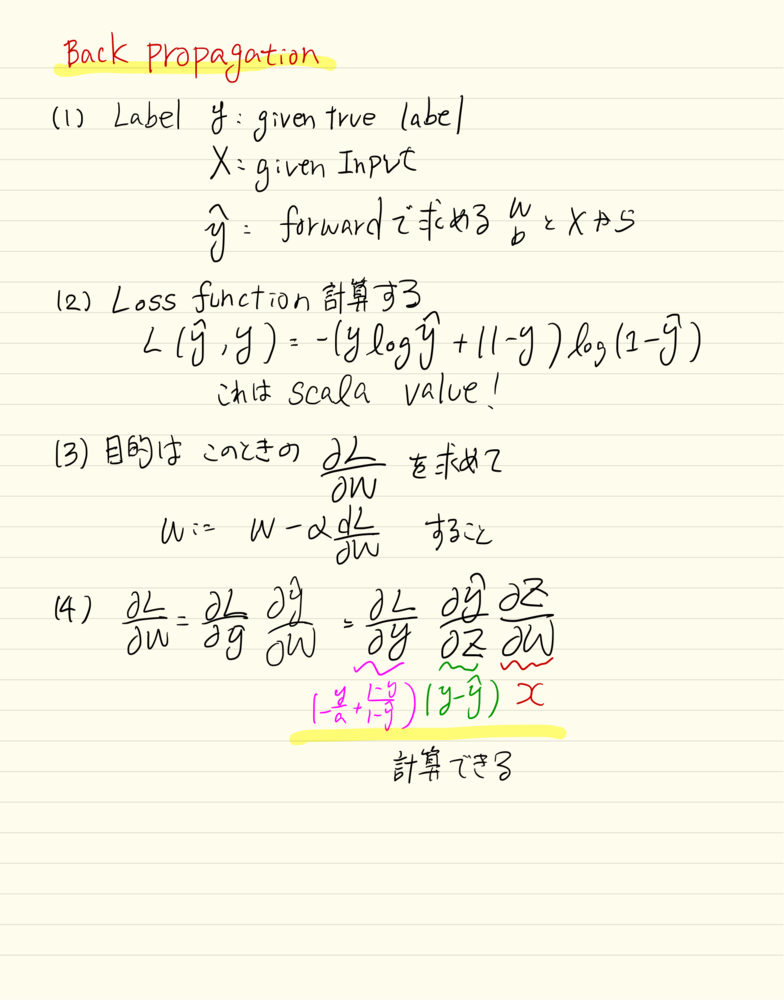 Back propagation
(1) Label y: given true label
X: given Input
ŷ: forwardで求める w b と X から
(2) Loss function 計算する
L(ŷ, y) = -(y log ŷ + (1-y) log(1-ŷ)
これは scala value!
(3) 目的は このときの ∂L/∂W を求めて
W := W - α dL/∂W すること
(4) ∂L/∂W = ∂L/∂y ∂ŷ/∂W = ∂L/∂y ∂ŷ/∂Z ∂Z/∂W
(-y/a + 1-y/1-ŷ) (y-ŷ) x
計算できる